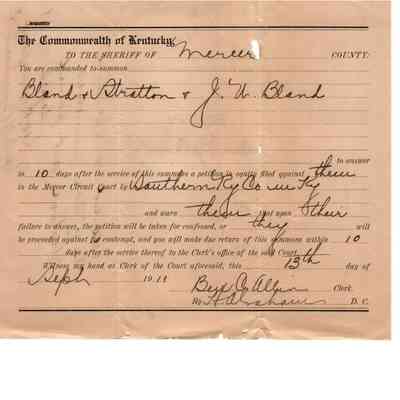 The Commonwealth of Kentucky,
TO THE SHERIFF OF Mercer COUNTY:
You are commanded to summon
Bland & Stratton & J. W. Bland
to answer
in 10 days after the service of this summons a petition in equity filed against them
in the Mercer Circuit Court by Southern Ry Co in Ky
and warn them that upon their
failure to answer, the petition will be taken for confessed, or they will
be proceeded against for contempt, and you will make due return of this summons within 10
days after the service thereof to the Clerk's office of the said Court.
Witness my hand as Clerk of the Court aforesaid, this 13th day of
Sept 1911
Ben C. Allin Clerk.
By D. C.